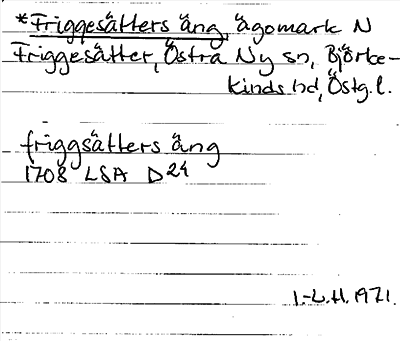 *Friggesätters äng, ägomark N
Friggesätter, Östra Ny sn, Björke-
kinds hd, Östg.l.
friggsätters äng
1708 LSA D24
I.-L.H. 1971.